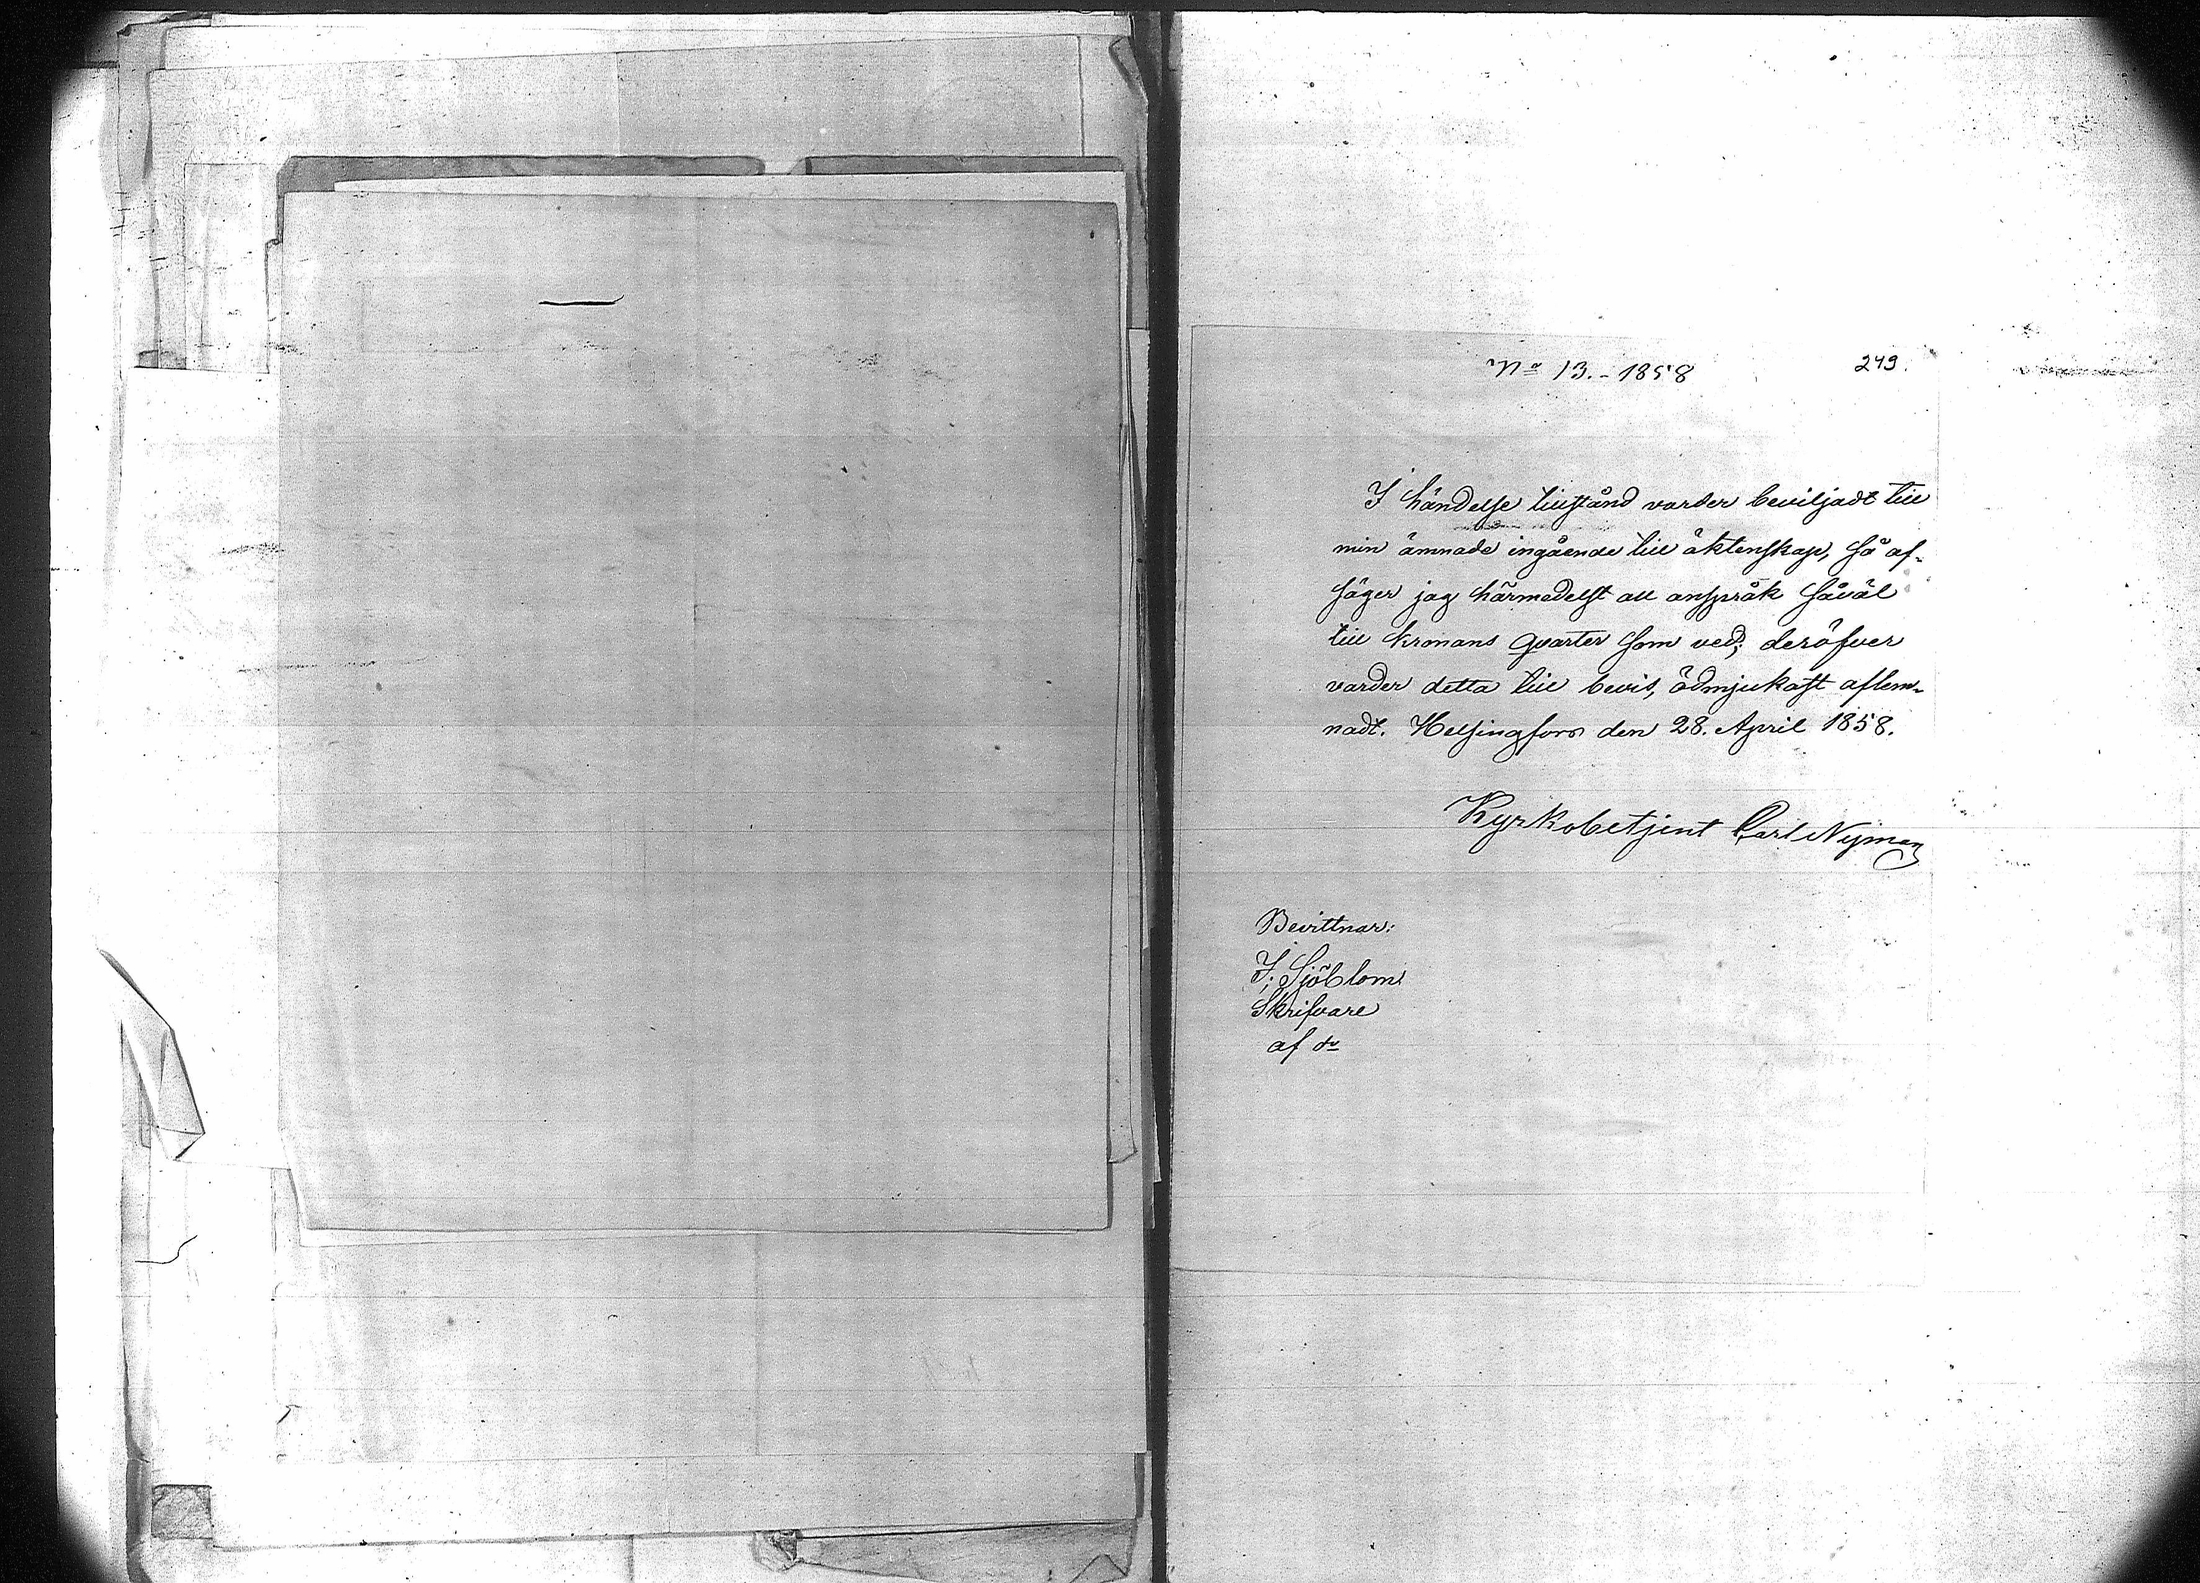 No 13. - 1858
249.
I händelse tillstånd varder beviljadt till
min ämnade ingående till äktenskap, så af-
säger jag härmedelst all anspråk såväl
till kronans qvarter som ved; deröfver
varder detta till bevis, ödmjukast aflem-
nadt. Helsingfors den 28. April 1858.
Kyrkobetjent Carl Nyman
Bevittnar:
J: Sjöblom
Skrifvare
af do